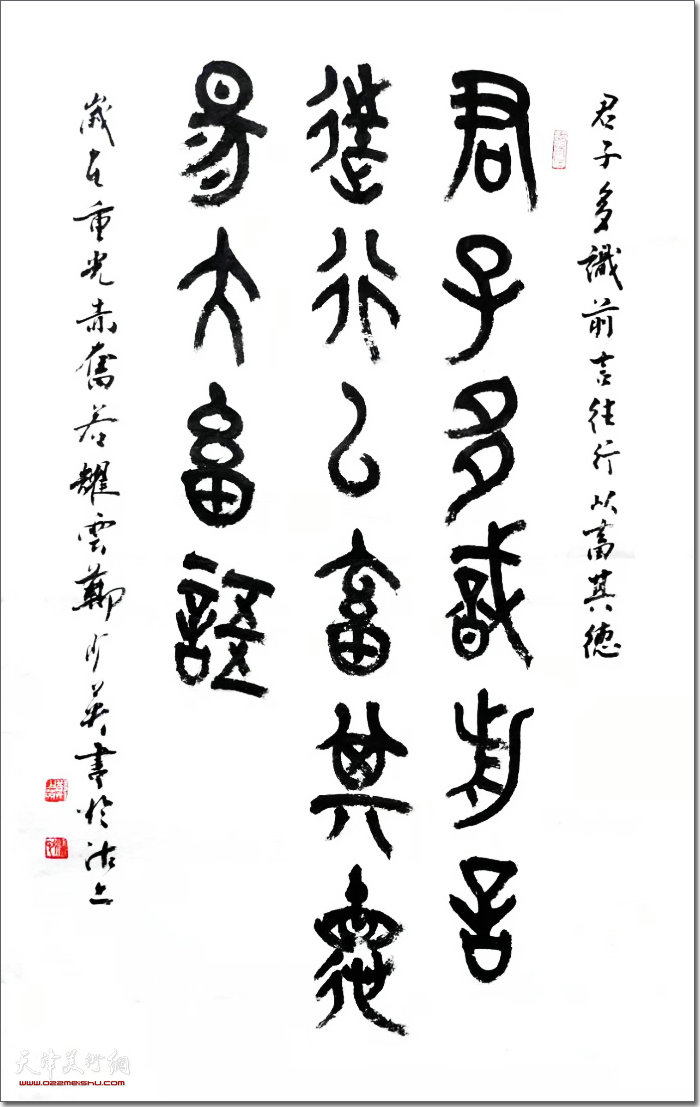 君子多識前言往行以畜其德
君子多識前言
往行以畜其德
易大畜語
歲在重光赤奮若耀雲鄭少英書於沽上
天津美术网
www.022meishu.com